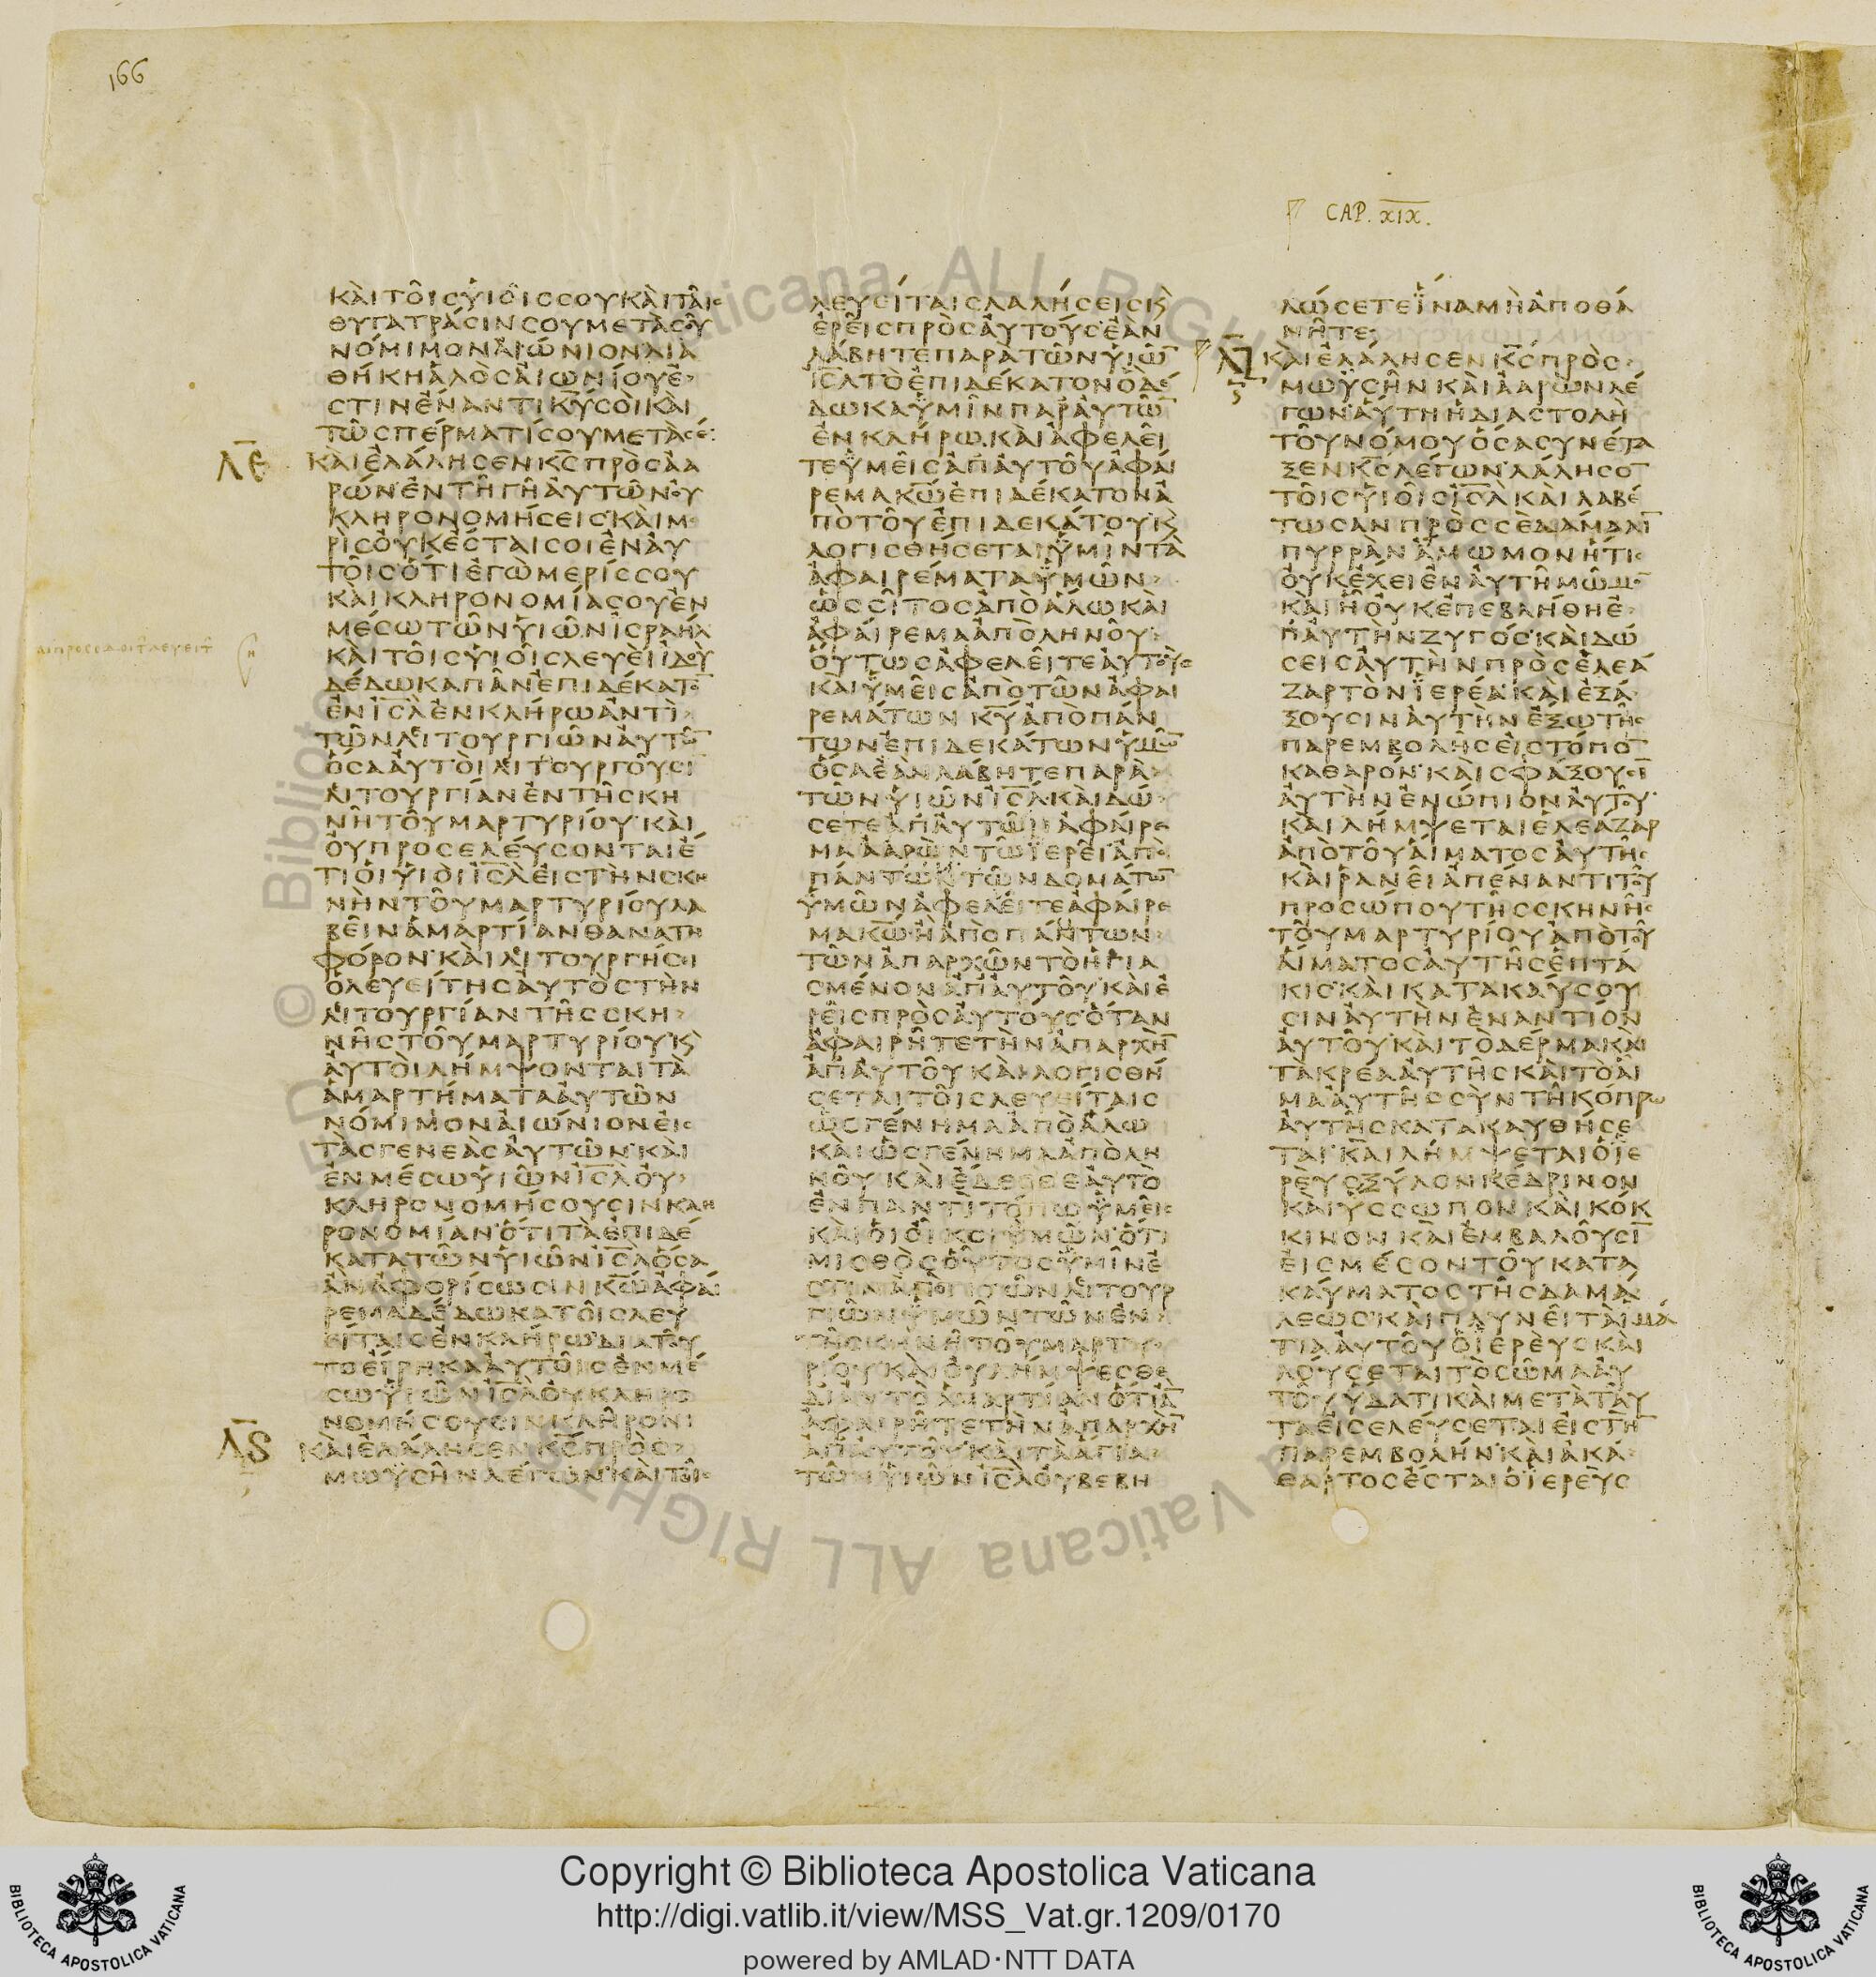 166
CAP. XIX.
ΚΑΙΤΟΙΣΥΙΟΙΣΣΟΥΚΑΙΤΑΙΣ
ΘΥΓΑΤΡΑΣΙΝΣΟΥΜΕΤΑΣΟΥ
ΝΟΜΙΜΟΝΑΙΩΝΙΟΝΔΙΑ
ΘΗΚΗΑΛΟΣΑΙΩΝΙΟΥΕ
ΣΤΙΝΕΝΑΝΤΙΚΥΣΟΙΚΑΙ
ΤΩΣΠΕΡΜΑΤΙΣΟΥΜΕΤΑΣΕ
ΛΕ
ΚΑΙΕΛΑΛΗΣΕΝΚΣΠΡΟΣΑΑ
ΡΩΝΕΝΤΗΓΗΑΥΤΩΝΟΥ
ΚΛΗΡΟΝΟΜΗΣΕΙΣΚΑΙΜΕ
ΡΙΣΟΥΚΕΣΤΑΙΣΟΙΕΝΑΥ
ΤΟΙΣΟΤΙΕΓΩΜΕΡΙΣΣΟΥ
ΚΑΙΚΛΗΡΟΝΟΜΙΑΣΟΥΕΝ
ΜΕΣΩΤΩΝΥΙΩΝΙΣΡΑΗΛ
ΚΑΙΤΟΙΣΥΙΟΙΣΛΕΥΕΙΙΔΟΥ
ΔΕΔΩΚΑΠΑΝΕΠΙΔΕΚΑΤΟ
ΕΝΙΣΛΕΝΚΛΗΡΩΑΝΤΙ
ΤΩΝΛΙΤΟΥΡΓΙΩΝΑΥΤΩ
ΟΣΑΑΥΤΟΙΛΙΤΟΥΡΓΟΥΣΙ
ΛΙΤΟΥΡΓΙΑΝΕΝΤΗΣΚΗ
ΝΗΤΟΥΜΑΡΤΥΡΙΟΥΚΑΙ
ΟΥΠΡΟΣΕΛΕΥΣΟΝΤΑΙΕ
ΤΙΟΙΥΙΟΙΙΣΛΕΙΣΤΗΝΣΚΗ
ΝΗΝΤΟΥΜΑΡΤΥΡΙΟΥΛΑ
ΒΕΙΝΑΜΑΡΤΙΑΝΘΑΝΑΤΗ
ΦΟΡΟΝΚΑΙΛΙΤΟΥΡΓΗΣΕΙ
ΟΛΕΥΕΙΤΗΣΑΥΤΟΣΤΗΝ
ΛΙΤΟΥΡΓΙΑΝΤΗΣΣΚΗ
ΝΗΣΤΟΥΜΑΡΤΥΡΙΟΥΚ
ΑΥΤΟΙΛΗΜΨΟΝΤΑΙΤΑ
ΑΜΑΡΤΗΜΑΤΑΑΥΤΩΝ
ΝΟΜΙΜΟΝΑΙΩΝΙΟΝΕΙΣ
ΤΑΣΓΕΝΕΑΣΑΥΤΩΝΚΑΙ
ΕΝΜΕΣΩΥΙΩΝΙΣΛΟΥ
ΚΛΗΡΟΝΟΜΗΣΟΥΣΙΝΚΛΗ
ΡΟΝΟΜΙΑΝΟΤΙΤΑΕΠΙΔΕ
ΚΑΤΑΤΩΝΥΙΩΝΙΣΛΟΣΑ
ΑΝΑΦΟΡΙΣΩΣΙΝΚΩΑΦΑΙ
ΡΕΜΑΔΕΔΩΚΑΤΟΙΣΛΕΥ
ΕΙΤΑΙΣΕΝΚΛΗΡΩΔΙΑΤΟΥ
ΤΟΕΙΡΗΚΑΑΥΤΟΙΣΕΝΜΕ
ΣΩΥΙΩΝΙΣΛΟΥΚΛΗΡΟ
ΝΟΜΗΣΟΥΣΙΝΚΛΗΡΟΝ
ΛS
ΚΑΙΕΛΑΛΗΣΕΝΚΣΠΡΟΣ
ΜΩΥΣΗΝΛΕΓΩΝΚΑΙΤΟΙΣ
ΛΕΥΕΙΤΑΙΣΛΑΛΗΣΕΙΣΚ
ΕΡΕΙΣΠΡΟΣΑΥΤΟΥΣΕΑΝ
ΛΑΒΗΤΕΠΑΡΑΤΩΝΥΙΩ
ΙΣΛΤΟΕΠΙΔΕΚΑΤΟΝΟΔΕ
ΔΩΚΑΥΜΙΝΠΑΡΑΥΤΩ
ΕΝΚΛΗΡΩΚΑΙΑΦΕΛΕΙ
ΤΕΥΜΕΙΣΑΠΑΥΤΟΥΑΦΑΙ
ΡΕΜΑΚΩΕΠΙΔΕΚΑΤΟΝΑ
ΠΟΤΟΥΕΠΙΔΕΚΑΤΟΥΚ
ΛΟΓΙΣΘΗΣΕΤΑΙΥΜΙΝΤΑ
ΑΦΑΙΡΕΜΑΤΑΥΜΩΝ
ΩΣΣΙΤΟΣΑΠΟΑΛΩΚΑΙ
ΑΦΑΙΡΕΜΑΑΠΟΛΗΝΟΥ
ΟΥΤΩΣΑΦΕΛΕΙΤΕΑΥΤΟΥΣ
ΚΑΙΥΜΕΙΣΑΠΟΤΩΝΑΦΑΙ
ΡΕΜΑΤΩΝΚΥΑΠΟΠΑΝ
ΤΩΝΕΠΙΔΕΚΑΤΩΝΥΜΩ
ΟΣΑΕΑΝΛΑΒΗΤΕΠΑΡΑ
ΤΩΝΥΙΩΝΙΣΛΚΑΙΔΩ
ΣΕΤΕΑΠΑΥΤΩΝΑΦΑΙΡΕ
ΜΑΑΑΡΩΝΤΩΙΕΡΕΙΑΠΟ
ΠΑΝΤΩΝΤΩΝΔΟΜΑΤΩ
ΥΜΩΝΑΦΕΛΕΙΤΕΑΦΑΙΡΕ
ΜΑΚΩΗΑΠΟΠΑΝΤΩΝ
ΤΩΝΑΠΑΡΧΩΝΤΟΗΓΙΑ
ΣΜΕΝΟΝΑΠΑΥΤΟΥΚΑΙΕ
ΡΕΙΣΠΡΟΣΑΥΤΟΥΣΟΤΑΝ
ΑΦΑΙΡΗΤΕΤΗΝΑΠΑΡΧΗ
ΑΠΑΥΤΟΥΚΑΙΛΟΓΙΣΘΗ
ΣΕΤΑΙΤΟΙΣΛΕΥΕΙΤΑΙΣ
ΩΣΓΕΝΗΜΑΑΠΟΑΛΩ
ΚΑΙΩΣΓΕΝΗΜΑΑΠΟΛΗ
ΝΟΥΚΑΙΕΔΕΣΘΕΑΥΤΟ
ΕΝΠΑΝΤΙΤΟΠΩΥΜΕΙΣ
ΚΑΙΟΙΟΙΚΟΙΥΜΩΝΟΤΙ
ΜΙΣΘΟΣΟΥΤΟΣΥΜΙΝΕ
ΣΤΙΝΑΝΤΙΤΩΝΛΙΤΟΥΡ
ΓΙΩΝΥΜΩΝΤΩΝΕΝ
ΤΗΣΚΗΝΗΤΟΥΜΑΡΤΥ
ΡΙΟΥΚΑΙΟΥΛΗΜΨΕΣΘΕ
ΔΙΑΥΤΟΑΜΑΡΤΙΑΝΟΤΙΑ
ΑΦΑΙΡΗΤΕΤΗΝΑΠΑΡΧΗ
ΑΠΑΥΤΟΥΚΑΙΤΑΑΓΙΑ
ΤΩΝΥΙΩΝΙΣΛΟΥΒΕΒΗ
ΛΩΣΕΤΕΙΝΑΜΗΑΠΟΘΑ
ΝΗΤΕ
ΛΖ
ΚΑΙΕΛΑΛΗΣΕΝΚΣΠΡΟΣ
ΜΩΥΣΗΝΚΑΙΑΑΡΩΝΛΕ
ΓΩΝΑΥΤΗΗΔΙΑΣΤΟΛΗ
ΤΟΥΝΟΜΟΥΟΣΑΣΥΝΕΤΑ
ΞΕΝΚΣΛΕΓΩΝΛΑΛΗΣΟ
ΤΟΙΣΥΙΟΙΣΙΣΛΚΑΙΛΑΒΕ
ΤΩΣΑΝΠΡΟΣΣΕΔΑΜΑΛΙ
ΠΥΡΡΑΝΑΜΩΜΟΝΗΤΙΣ
ΟΥΚΕΧΕΙΕΝΑΥΤΗΜΩΜΟ
ΚΑΙΗΟΥΚΕΠΕΒΛΗΘΗΕ
ΠΑΥΤΗΝΖΥΓΟΣΚΑΙΔΩ
ΣΕΙΣΑΥΤΗΝΠΡΟΣΕΛΕΑ
ΖΑΡΤΟΝΙΕΡΕΑΚΑΙΕΞΑ
ΞΟΥΣΙΝΑΥΤΗΝΕΞΩΤΗΣ
ΠΑΡΕΜΒΟΛΗΣΕΙΣΤΟΠΟ
ΚΑΘΑΡΟΝΚΑΙΣΦΑΞΟΥΣΙ
ΑΥΤΗΝΕΝΩΠΙΟΝΑΥΤΟΥ
ΚΑΙΛΗΜΨΕΤΑΙΕΛΕΑΖΑΡ
ΑΠΟΤΟΥΑΙΜΑΤΟΣΑΥΤΗΣ
ΚΑΙΡΑΝΕΙΑΠΕΝΑΝΤΙΤΟΥ
ΠΡΟΣΩΠΟΥΤΗΣΣΚΗΝΗΣ
ΤΟΥΜΑΡΤΥΡΙΟΥΑΠΟΤΟΥ
ΑΙΜΑΤΟΣΑΥΤΗΣΕΠΤΑ
ΚΙΣΚΑΙΚΑΤΑΚΑΥΣΟΥ
ΣΙΝΑΥΤΗΝΕΝΑΝΤΙΟΝ
ΑΥΤΟΥΚΑΙΤΟΔΕΡΜΑΚΑΙ
ΤΑΚΡΕΑΑΥΤΗΣΚΑΙΤΟΑΙ
ΜΑΑΥΤΗΣΣΥΝΤΗΚΟΠΡΩ
ΑΥΤΗΣΚΑΤΑΚΑΥΘΗΣΕ
ΤΑΙΚΑΙΛΗΜΨΕΤΑΙΟΙΕ
ΡΕΥΣΞΥΛΟΝΚΕΔΡΙΝΟΝ
ΚΑΙΥΣΣΩΠΟΝΚΑΙΚΟΚ
ΚΙΝΟΝΚΑΙΕΜΒΑΛΟΥΣΙ
ΕΙΣΜΕΣΟΝΤΟΥΚΑΤΑ
ΚΑΥΜΑΤΟΣΤΗΣΔΑΜΑ
ΛΕΩΣΚΑΙΠΛΥΝΕΙΤΑΙΜΑ
ΤΙΑΑΥΤΟΥΟΙΕΡΕΥΣΚΑΙ
ΛΟΥΣΕΤΑΙΤΟΣΩΜΑΑΥ
ΤΟΥΥΔΑΤΙΚΑΙΜΕΤΑΤΑΥ
ΤΑΕΙΣΕΛΕΥΣΕΤΑΙΕΙΣΤΗ
ΠΑΡΕΜΒΟΛΗΝΚΑΙΑΚΑ
ΘΑΡΤΟΣΕΣΤΑΙΟΙΕΡΕΥΣ
Copyright © Biblioteca Apostolica Vaticana
http://digi.vatlib.it/view/MSS_Vat.gr.1209/0170
powered by AMLAD·NTT DATA
BIBLIOTECA APOSTOLICA VATICANA
BIBLIOTECA APOSTOLICA VATICANA